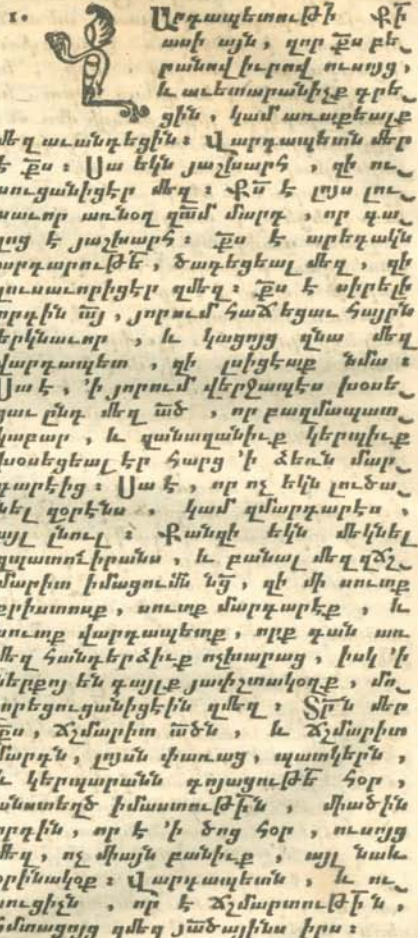 1. Վարդապետութի՟ Ք՟ի
ասի այն, զոր Ք՟ս բե֊
րանով իւրով ուսոյց,
և աւետարանիչք գրե֊
ցին, կամ առաքեալք
մեզ աւանդեցին։ Վարդապետն մեր
է Ք՟ս։ Սա եկն յաշխարհ, զի ու֊
սուցանիցէր մեզ։ Ք՟ս է լոյս լու֊
սաւոր առնօղ զա՟մ մարդ, որ գա֊
լոց է յաշխարհ։ Ք՟ս է արեգակն
արդարութե՟, ծագեցեալ մեզ, զի
լուսաւորիցէր զմեզ։ Ք՟ս է սիրելի
որդին ա՟յ, յորում հաճեցաւ հայրն
երկնաւոր, և կացոյց զնա մեզ
վարդապետ, զի լսիցեմք նմա։
Սա է, ՚ի յորում վերջապէս խօսե֊
ցաւ ընդ մեզ ա՟ծ, որ բազմապատ֊
կաբար, և զանազանիւք կերպիւք
խօսեցեալ էր հարց ՚ի ձեռն մար֊
գարէից։ Սա է, որ ոչ եկն լուծա֊
նել զօրէնս, կամ զմարգարէս,
այլ լնուլ։ Քանզի եկն մեկնել
զպատուիրանս, և բանալ մեզ զճշ֊
մարիտ իմացումն ն՟ց, զի մի սուտք
քրիստոսք, սուտք մարգարէք, և
սուտք վարդապետք, որք գան առ
մեզ հանդերձիւք ոչխարաց, իսկ ՚ի
ներքոյ են գայլք յափշտակօղք, մո֊
լորեցուցանիցեին զմեզ։ Տ՟րն մեր
Ք՟ս, ճշմարիտ ա՟ծն, և ճշմարիտ
մարդն, լոյսն փառաց, պատկերն,
և կերպարանն գոյացութե՟ հօր,
անստեղծ իմաստութի՟ն, միածին
որդին, որ է ՚ի ծոց հօր, ուսոյց
մեզ, ոչ միայն բանիւք, այլ նաև
օրինակօք։ Վարդապետն, և ու֊
սուցիչն, որ է ճշմարտութի՟ն,
իմացոյց զմեզ յա՟ծայինս իրս։